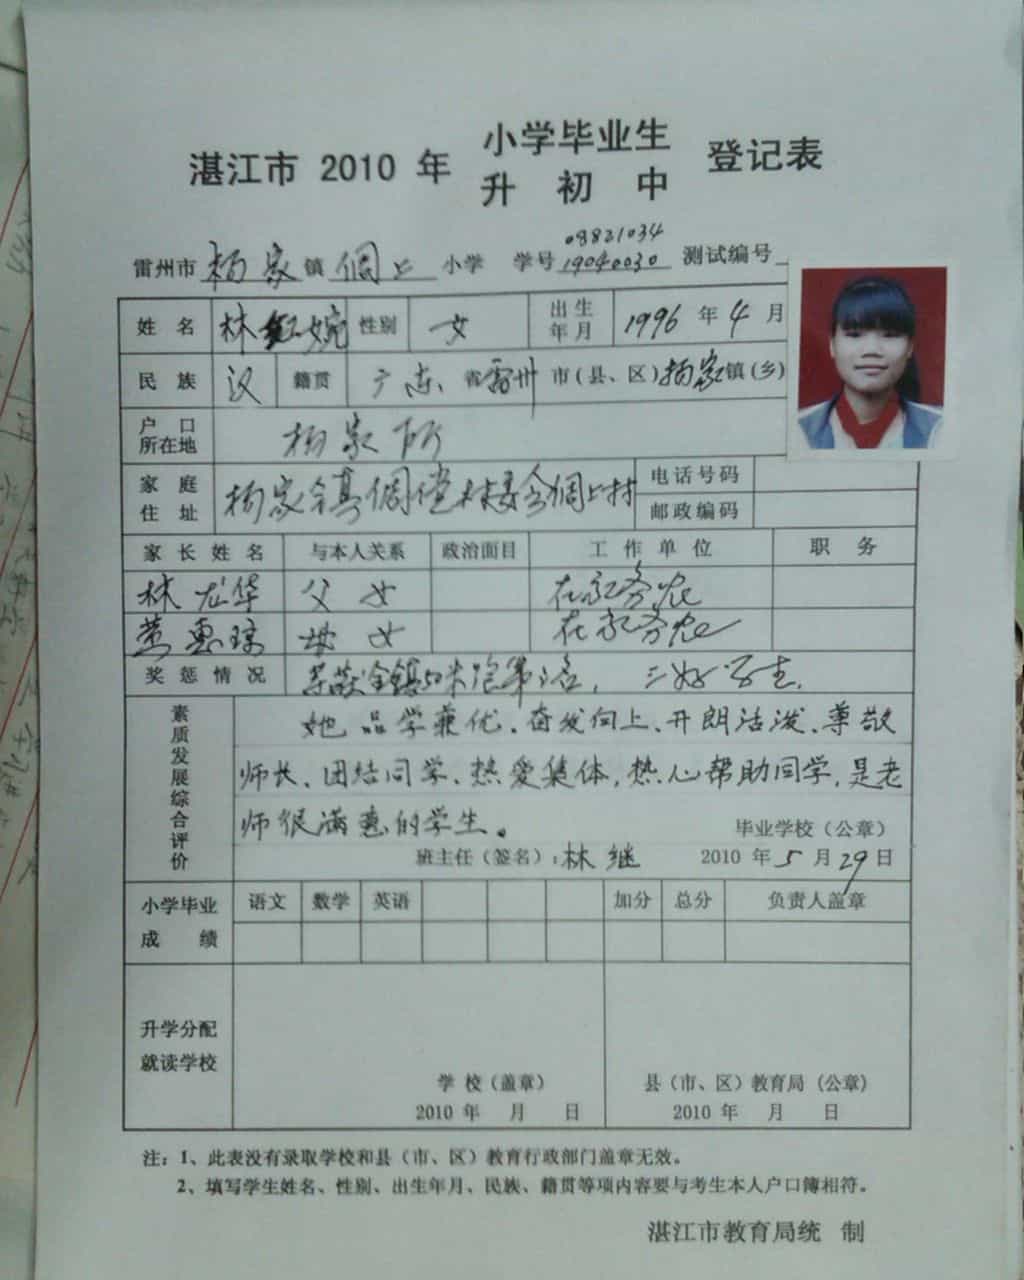 湛江市 2010 年 小学毕业生 登记表
升 初 中
08821034
雷州市 杨家 镇 倜上 小学 学号 19040030 测试编号
姓 名 林红婉 性别 女 出生年月 1996 年 4 月
民 族 汉 籍贯 广东 省 雷州 市(县、区) 杨家 镇(乡)
户 口 所在地 杨家所
家 庭 住 址 杨家镇 倜上村 电话号码
邮政编码
家 长 姓 名 与本人关系 政治面目 工 作 单 位 职 务
林龙华 父女 在家务农
惠琼 母女 在家务农
奖 惩 情 况 三好学生.
素质发展综合评价 她品学兼优、奋发向上、开朗活泼、尊敬
师长、团结同学、热爱集体,热心帮助同学,是老
师很满意的学生。 毕业学校(公章)
班主任(签名):林继 2010 年 5 月 29 日
小学毕业 语文 数学 英语 加分 总分 负责人盖章
成 绩
升学分配
就读学校
学 校(盖章) 县(市、区)教育局(公章)
2010 年 月 日 2010 年 月 日
注:1、此表没有录取学校和县(市、区)教育行政部门盖章无效。
2、填写学生姓名、性别、出生年月、民族、籍贯等项内容要与考生本人户口簿相符。
湛江市教育局统 制